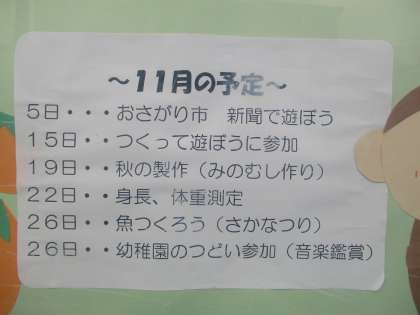 ～11月の予定～
5日・・・おさがり市　新聞で遊ぼう
15日・・つくって遊ぼうに参加
19日・・秋の製作（みのむし作り）
22日・・身長、体重測定
26日・・魚つくろう（さかなつり）
26日・・幼稚園のつどい参加（音楽鑑賞）